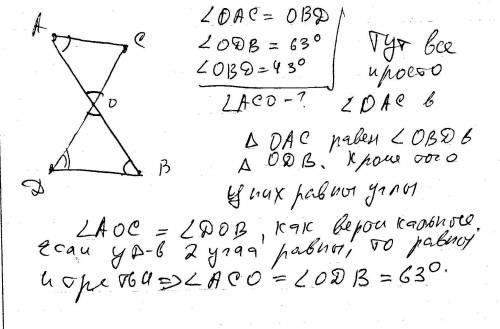 A
C
O
D
B
∠OAC = OBD
∠ODB = 63°
∠OBD = 43°
∠ACO - ?
Тут все
просто
∠OAC в
△ OAC равен ∠OBD в
△ ODB. Кроме того
у них равны углы
∠AOC = ∠DOB, как вертикальные.
Если у Δ-в 2 угла равны, то равны
и третьи => ∠ACO = ∠ODB = 63°.